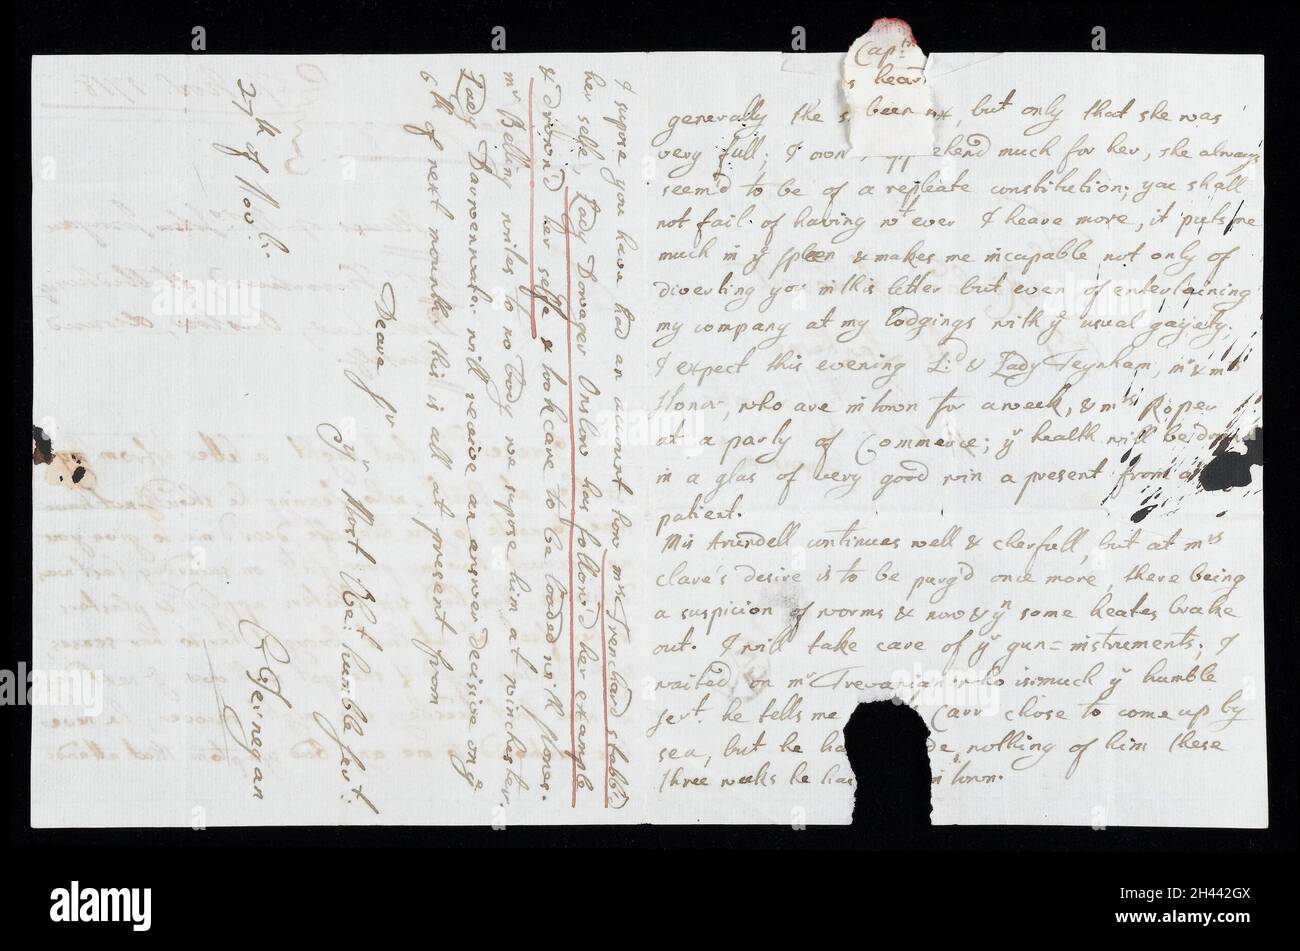 Capt.
s hear
generally the s been , but only that she was
very full; I own apprehend much for her, she always
seem'd to be of a repleate constitution; you shall
not fail of having wt. ever I heare more, it puts me
much in ye spleen & makes me incapable not only of
diverting you in this letter but even of entertaining
my company at my lodgings with ye usual gayety.
I expect this evening Ld. & Lady Teynham, mr & mrs
Honor, who are in town for a week, & mrs Roper
at a party of Commerce; yr health will be
in a glas of very good win a present from a
patient.
Mis Arundell continues well & cherfull, but at mrs
Clare's desire is to be purg'd once more, there being
a suspicion of worms & now & yn some heates brake
out. I will take care of yr gun=instruments. I
waited on mr Trevanian who is much yr humble
servt. he tells me Carr chose to come up by
sea, but he ha nothing of him these
three weeks he has in town.
I supose you have had an account how mrs Trenchard stabb'd
her selfe, Lady Dowager Onslow has follow'd her example
& drown'd her selfe & took care to be loaded with stones.
mr Belling writes to no body we supose him at winchester.
Lady Dawenwater will receive an answer decisive on ye
6th of next month. this is all at present from
Deare Sr
yr Most Obt. humble Servt.
C Jernegan
27th of Novbr.
alamy
Image ID: 2H442GX
www.alamy.com